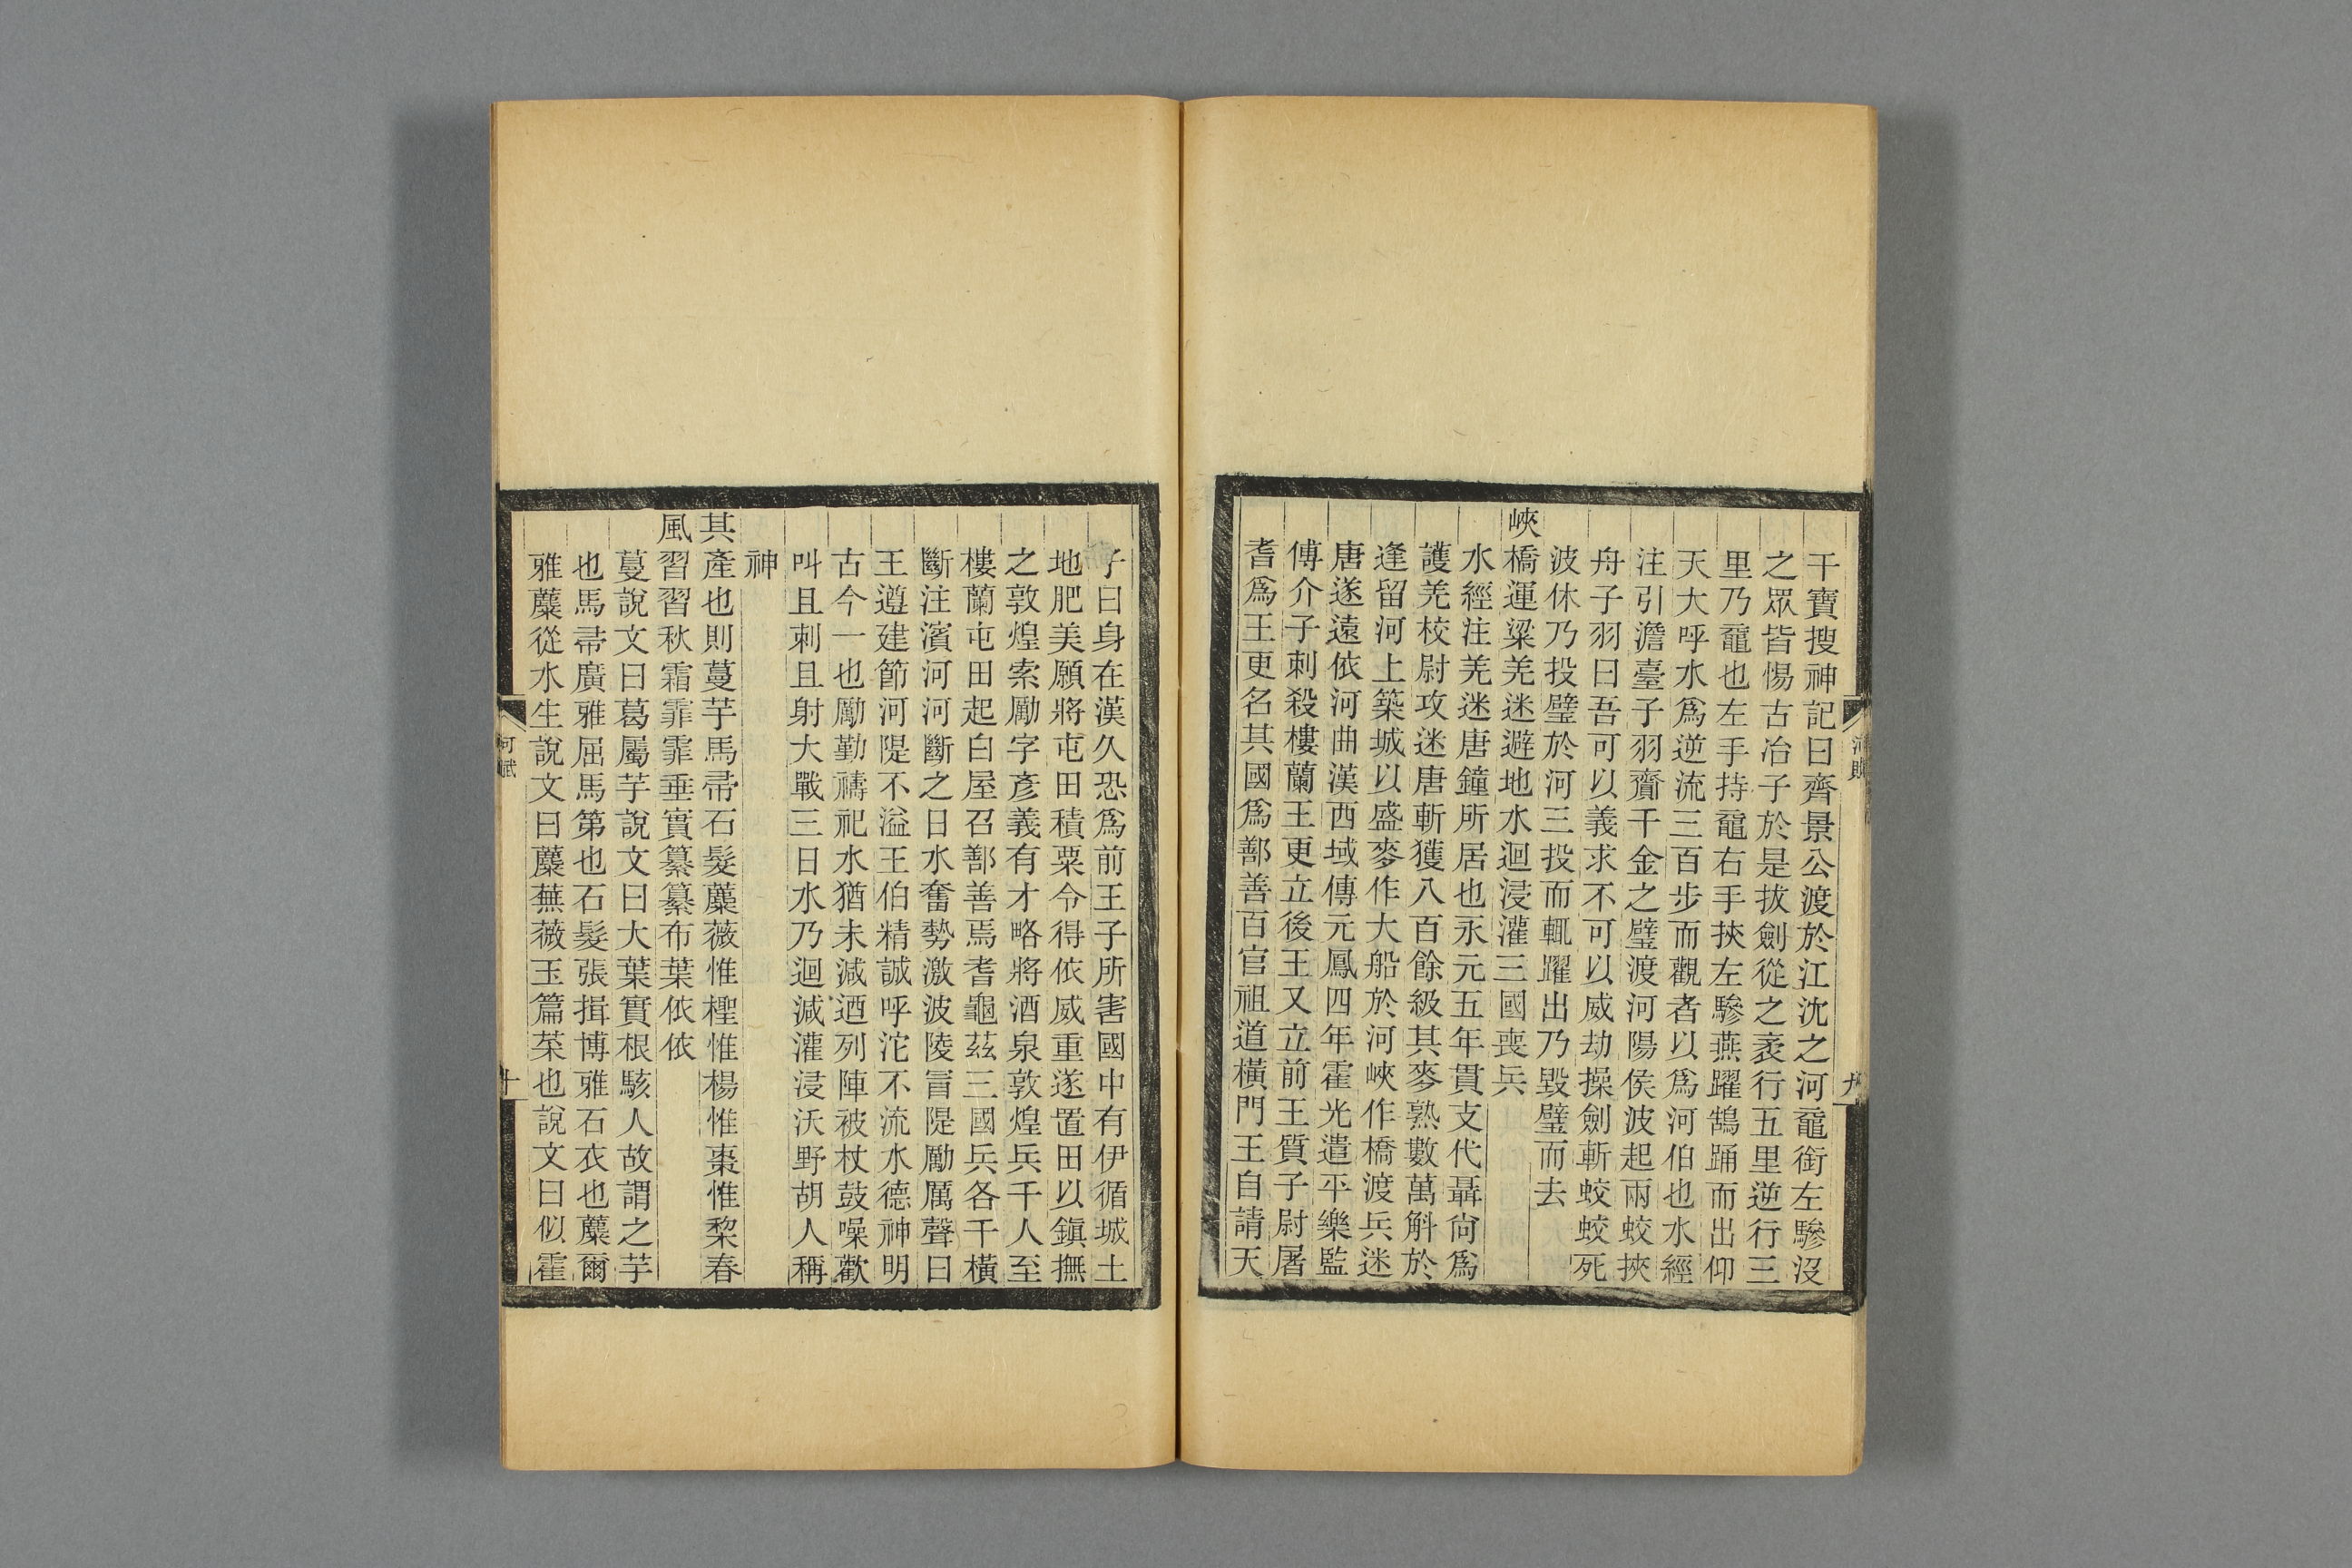 干寶搜神記曰齊景公渡於江沈之河黿銜左驂沒
之眾皆惕古冶子於是拔劍從之袤行五里逆行三
里乃黿也左手持黿右手挾左驂燕躍鵠踊而出仰
天大呼水為逆流三百步而觀者以為河伯也水經
注引澹臺子羽齎千金之璧渡河陽侯波起兩蛟挾
舟子羽曰吾可以義求不可以威劫操劍斬蛟蛟死
波休乃投璧於河三投而輒躍出乃毀璧而去
峽橋運粱羌迷避地水迴浸灌三國喪兵
水經注羌迷唐鐘所居也永元五年貫支代聶尙爲
護羌校尉攻迷唐斬獲八百餘級其麥熟數萬斛於
逢留河上築城以盛麥作大船於河峽作橋渡兵迷
唐遂遠依河曲漢西域傳元鳳四年霍光遣平樂監
傅介子刺殺樓蘭王更立後王又立前王質子尉屠
耆爲王更名其國爲鄯善百官祖道橫門王自請天
九
子曰身在漢久恐爲前王子所害國中有伊循城土
地肥美願將屯田積粟令得依威重遂置田以鎭撫
之敦煌索勵字彥義有才略將酒泉敦煌兵千人至
樓蘭屯田起白屋召鄯善焉耆龜茲三國兵各千橫
斷注濱河河斷之日水奮勢激波陵冒隄勵厲聲曰
王遵建節河隄不溢王伯精誠呼沱不流水德神明
古今一也勵勤禱祀水猶未減迺列陣被杖鼓噪歡
叫且刺且射大戰三日水乃迴減灌浸沃野胡人稱
神
其產也則蔓芋馬帚石髮蘪薇惟檉惟楊惟棗惟棃春
風習習秋霜霏霏垂實纂纂布葉依依
蔓說文曰葛屬芋說文曰大葉實根駭人故謂之芋
也馬帚廣雅屈馬第也石髮張揖博雅石衣也蘪爾
雅蘪從水生說文曰蘪蕪薇玉篇菜也說文曰似霍
河賦
十